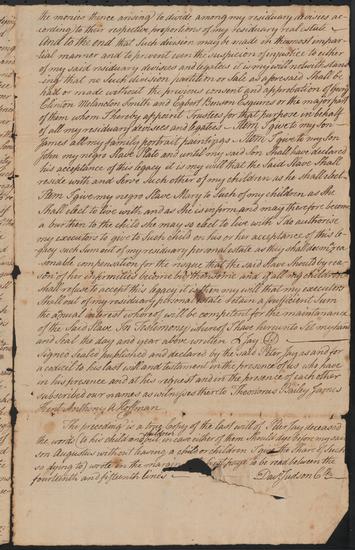 the monies thence arising to divide among my residuary devisees ac-
cording to their respective proportions of my residuary real estate
And to the end that such division may be made in the most impar-
tial manner and to prevent even the suspicion of injustice to either
of my said residuary devisees and legatees it is my will notwithstand-
ing that no such division partition or sale as aforesaid shall be
had or made without the previous consent and approbation of
Clinton Melancton Smith and Egbert Benson Esquires or the major part
of them whom I hereby appoint Trustees for that purpose in behalf
of all my residuary devisees and legatees. Item I give to my son
James all my family portrait paintings Item I give to my son
John my negro slave Plato and until my said son shall have declared
his acceptance of this legacy it is my will that the said slave shall
reside with and serve such other of my children as he shall elect
Item I give my negro slave Mary to such of my children as she
shall elect to live with and as she is infirm and may therefore become
a burthen to the child she may so elect to live with I do authorise
my executors to give to such child on his or her acceptance of this le-
gacy such sum out of my residuary personal estate as they shall deem a rea-
sonable compensation for the expence that the said slave should by rea-
son of her infirmities become burthensome and if all my children
shall refuse to accept this legacy it is then my will that my executors
shall out of my residuary personal estate retain a sufficient sum
the annual interest whereof will be competent for the maintenance
of the said slave. In Testimony whereof I have hereunto set my hand
and seal the day and year above written Jay
Signed sealed published and declared by the said Peter Jay as and for
a codicil to his last will and testament in the presence of us who have
in his presence and at his request and in the presence of each other
subscribed our names as witnesses thereto Theodorus Bailey James
Kent Anthony A Hoffman
The preceding is a true Copy of the last will of Peter Jay deceased
the words to his child or children in case either of them should dye before my said
son Augustus without leaving a child or children I give the share of such
so dying to) wrote in the margin page to be read between the
fourteenth and fifteenth lines
Davd Judson Clk